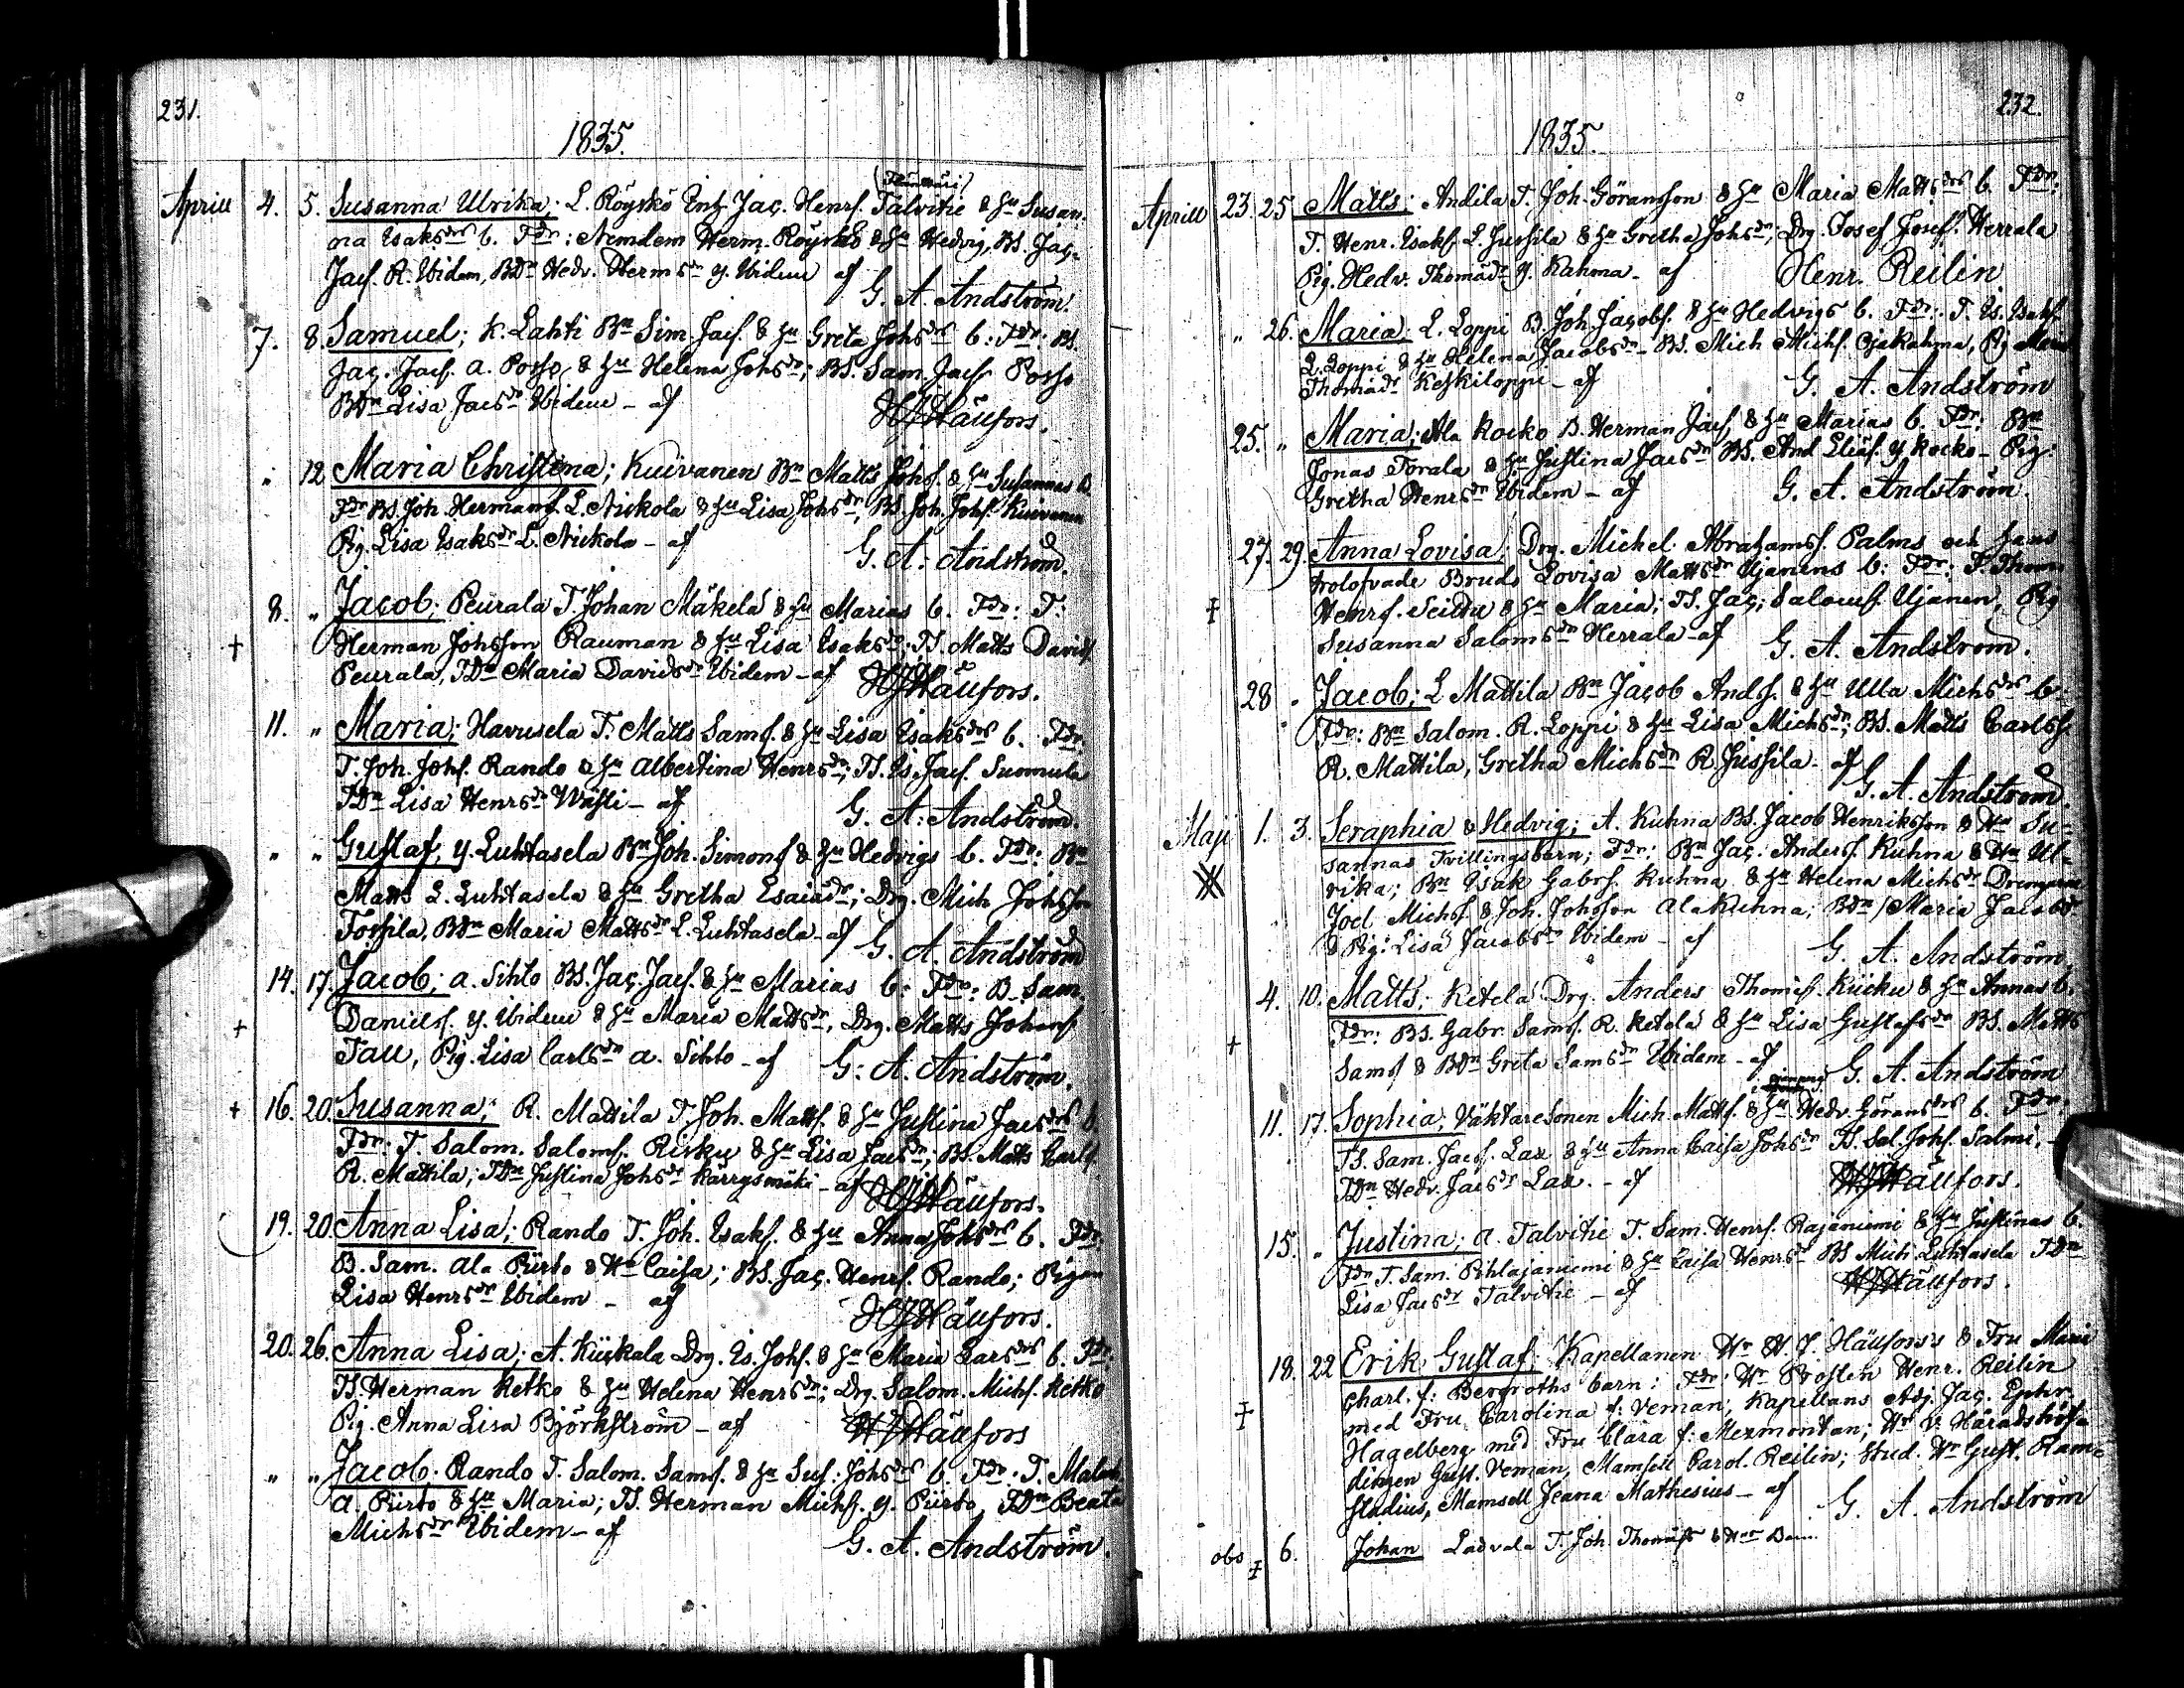 231.
1835.
(Tkunttari)
Aprill 4. 5. Susanna Ulrika; L. Röyskö Enk. Jac. Henrs. Talvitie & Hu Susan-
na Isaksdrs b. Fdr: Nemdem Herm. Röyskö & Hu Hedvig, BS. Jac.
Jacs. R. Ibidem, BDr Hedv. Hermsdr Y. Ibidem af
G. A. Andström.
7. 8. Samuel; K. Lahti Bn Sim. Jacs. & Hu Greta Johsdrs b: Fdr: BS.
Jac. Jacs. A. Posso, & Hu Helena Johsdr; BS. Sam. Jacs. Posso
BDr Lisa Jacsdr Ibidem - af
HJHäufors.
" 12 Maria Christina; Kuivanen Bn Matts Johs. & Hu Susannas b.
Fdr BS. Joh. Hermans. L. Niskola & Hu Lisa Johsdr, BS. Joh. Johs. Kuivanen
Pig. Lisa Isaksdr L. Niskola - af
G. A. Andström.
8. " Jacob; Peurala T. Johan Mäkelä & Hu Marias b. Fdr: T.
† Herman Johsson Rauman & Hu Lisa Isaksdr; TS. Matts Davids.
Peurala, TDr Maria Davidsdr Ibidem - af HJHäufors.
11. " Maria; Havusela T. Matts Sams. & Hu Lisa Isaksdrs b. Fdr.
T. Joh. Johs. Rando & Hu Albertina Henrsdr; TS. Is. Jacs. Suomula
TDr Lisa Henrsdr Wästi - af
G. A. Andström.
" " Gustaf; Y. Luhtasela Bn Joh. Simons. & Hu Hedvigs b. Fdr: Bn
Matts L. Luhtasela & Hu Gretha Esaiædr; Drg. Mich Johsson
Tossila, BDr Maria Mattsdr L. Luhtasela - af G. A. Andström
14. 17. Jacob; A. Sihto BS. Jac. Jacs. & Hu Marias b: Fdr: B. Sam.
† Daniels. Y. Ibidem & Hu Maria Mattsdr, Drg. Matts Johans.
Tau, Pig. Lisa Carlsdr A. Sihto - af G. A. Andström.
† 16. 20. Susanna; R. Mattila T. Joh. Matts. & Hu Justina Jacsdrs b.
Fdr: T. Salom. Saloms. Risku & Hu Lisa Jacsdr; BS. Matts Carls.
R. Mattila; TDr Justina Johsdr Kärrysmäki - af HJHäufors.
19. 20. Anna Lisa; Rando T. Joh. Isaks. & Hu Anna Johsdrs b. Fdr.
B. Sam. Ala Pürto & Hu Caisa; BS. Jac. Henrs. Rando; Pigan
Lisa Henrsdr Ibidem - af
HJHäufors.
20. 26. Anna Lisa; A. Küskala Drg. Is. Johs. & Hu Maria Larsdrs b. Fdr:
TS. Herman Ketko & Hu Helena Henrsdr; Drg. Salom. Michs. Ketko
Pig. Anna Lisa Björkström - af HJHäufors
" " Jacob; Rando T. Salom. Sams. & Hu Sus: Johsdrs b. Fdr: T. Malm.
A. Pürto & Hu Maria; TS. Herman Michs. Y. Pürto, TDr Beata
Michsdr Ibidem - af
G. A. Andström.
232.
1835.
Aprill 23. 25. Matts; Andila T. Joh. Göransson & Hu Maria Mattsdrs b. Fdr:
T. Henr. Isaks. L. Jussila & Hu Gretha Johsdr; Drg. Josef Josefs. Herrala
Pig. Hedv. Thomædr Y. Kahma - af Henr. Reilin
" 26. Maria; L. Loppi B. Joh. Jacobs. & Hu Hedvigs b. Fdr: T. Is. Isaks.
L. Loppi & Hu Helena Jacobsdr - BS. Mich Michs. Ojakahma, Pig Maria
Thomædr Keskiloppi - af G. A. Andström
25. " Maria; Ala Kocko B. Herman Jacs. & Hu Marias b. Fdr: Bn
Jonas Torala & Hu Justina Jacsdr BS. And Eliæs. Y. Kocko - Pig:
Gretha Henrsdr Ibidem - af G. A. Andström.
27. 29. Anna Lovisa; Drg. Michel Abrahams. Palms och hans
trolofvade Bruds Lovisa Mattsdr Ujanens b: Fdr: T. Thom
‡ Henrs. Seittu & Hu Maria; TS. Jac; Saloms. Ujanen, Pig
Susanna Salomsdr Herrala - af G. A. Andström.
28 " Jacob; L Mattila Bn Jacob Ands. & Hu Ulla Michsdrs b.
Fdr: Bn Salom. R. Loppi & Hu Lisa Michsdr; BS. Matts Carlss.
R. Mattila, Gretha Michsdr R. Jussila - af
G. A. Andström.
Maji 1. 3. Seraphia & Hedvig; A. Kuhna BS. Jacob Henriksson & Hu Su-
sannas Tvillingsbarn; Fdr: Bn Jac: Anders. Kuhna & Hu Ul-
rika; Bn Isak Gabrs. Kuhna & Hu Helena Michsdr Drengarne
Joel Michs. & Joh. Johsson Ala Kuhna; BDr Maria Jacobsdr
& Pig: Lisa Jacobsdr Ibidem - af G. A. Andström.
4. 10. Matts; Ketelä Drg. Anders Thomæs. Kücku & Hu Annas b.
† Fdr: BS. Gabr. Sams. R. Ketelä & Hu Lisa Gustafsdr BS. Matts
Sams. & BDr Greta Samsdr Ibidem - af G. A. Andström
11. 17. Sophia; Väktaresonen Mich. Matts. & Hu Hedv. Göransdrs b. Fdr:
TS. Sam. Jacs. Lax & Hu Anna Caisa Johsdr TS. Sal. Johs. Salmi, -
TDr Hedv. Jacsdr Lax. - af HJHäufors.
15. " Justina; A. Talvitie T. Sam. Henrs. Rajaniemi & Hu Justinas b
Fdr T. Sam. Pihlajaniemi & Hu Caisa Henrsdr BS Mich. Luhtasela TDr
Lisa Jacsdr Talvitie - af HJHäufors.
18. 22 Erik Gustaf; Kapellanen Hr H. J. Häufors's & Fru Maria
Charl. f: Bergroths barn: Fdr: Hr Prosten Henr. Reilin
‡ med Fru Carolina f: Veman, Kapellans Adj. Jac. Ephr.
Hagelberg med Fru Clara f: Mexmontan; Hr V. Häradshöf-
dingen Gust. Veman, Mamsell Carol. Reilin; Stud. Hr Gust. Ram-
stadius, Mamsell Jeana Mathesius - af G. A. Andström
obs ‡ 6. Johan Ladvala T. Joh. Thomæs.